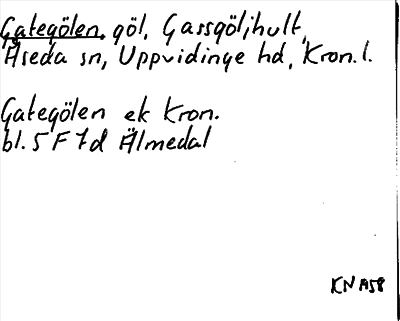 Gategölen, göl, Gassgöljhult,
Åseda sn, Uppvidinge hd, Kron. l.
Gategölen ek Kron.
bl. 5 F 7d Älmedal
KN A58